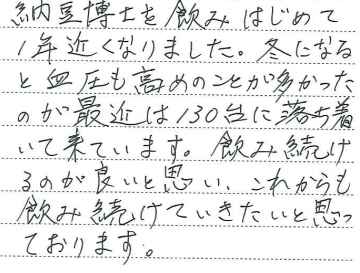 納豆博士を飲みはじめて
1年近くなりました。冬になる
と血圧も高めのことが多かった
のが最近は130台に落ち着
いて来ています。飲み続け
るのが良いと思い、これからも
飲み続けていきたいと思っ
ております。